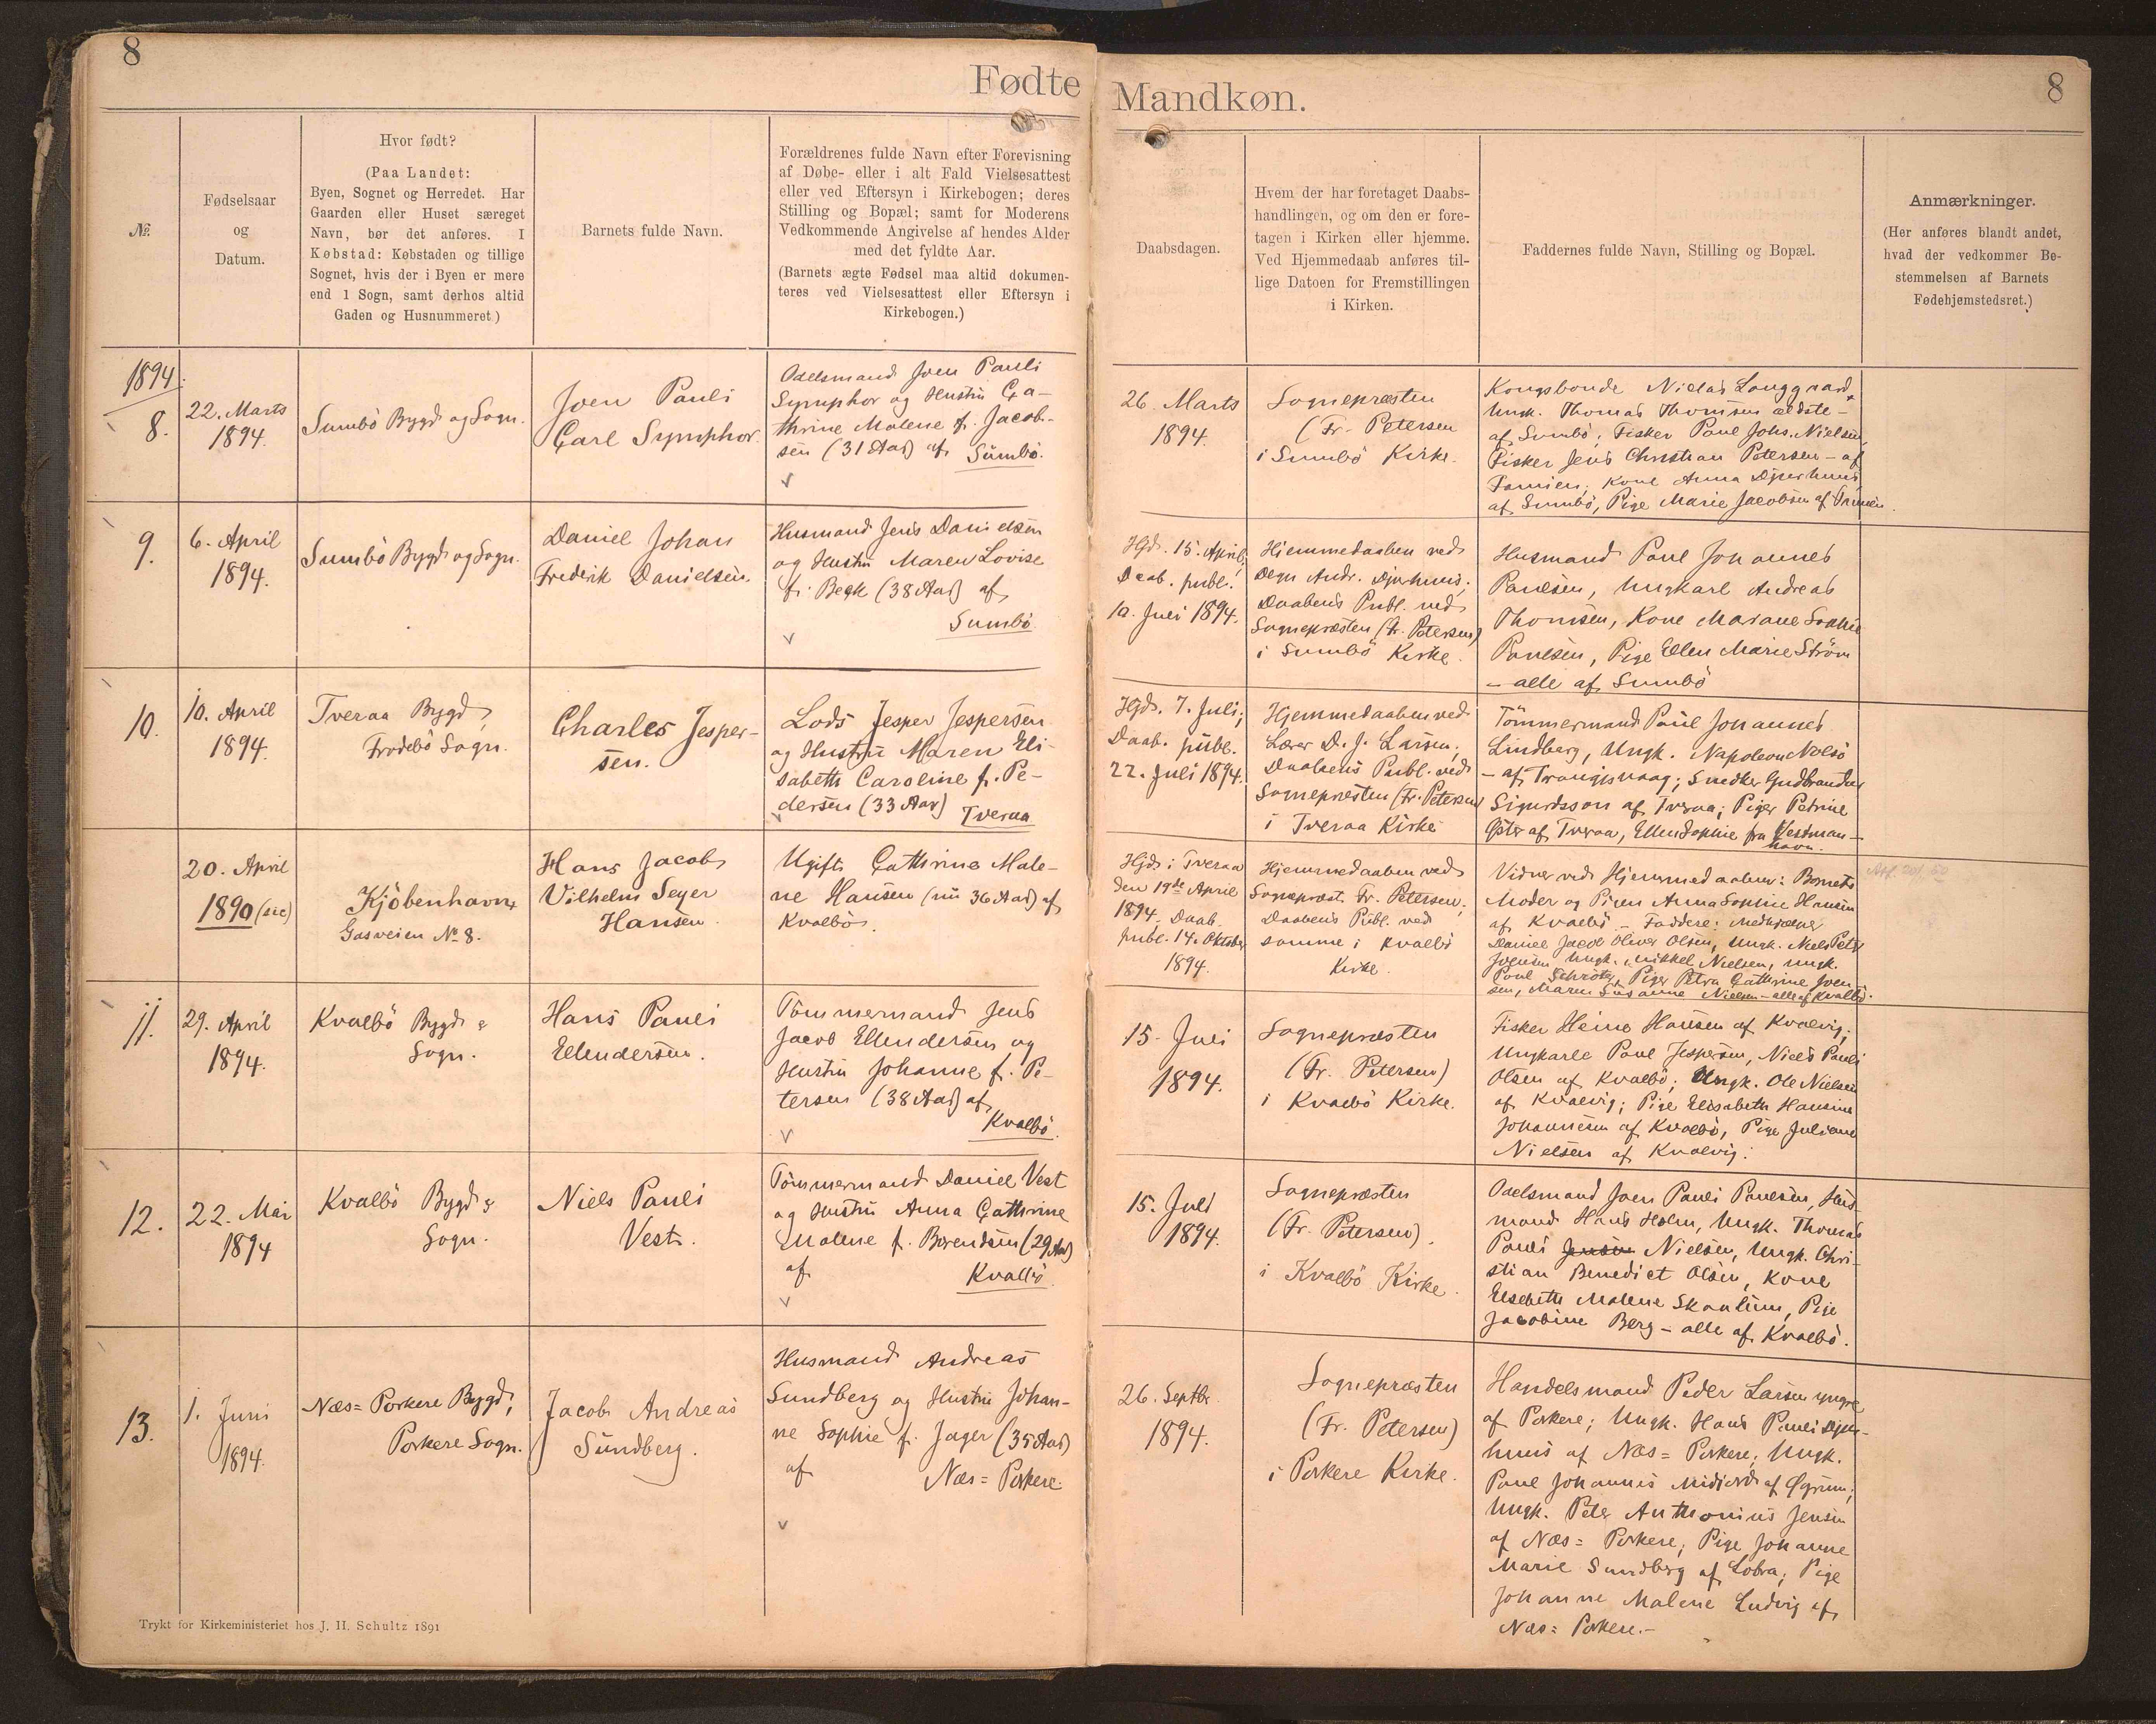 8
Fødte
Mandkøn.
8
№.
Fødselsaar
og
Datum.
Hvor født?
(Paa Landet:
Byen, Sognet og Herredet. Har
Gaarden eller Huset særeget
Navn, bør det anføres. I
Købstad: Købstaden og tillige
Sognet, hvis der i Byen er mere
end 1 Sogn, samt derhos altid
Gaden og Husnummeret)
Barnets fulde Navn.
Forældrenes fulde Navn efter Forevisning
af Døbe- eller i alt Fald Vielsesattest
eller ved Eftersyn i Kirkebogen; deres
Stilling og Bopæl; samt for Moderens
Vedkommende Angivelse af hendes Alder
med det fyldte Aar.
(Barnets ægte Fødsel maa altid dokumen-
teres ved Vielsesattest eller Eftersyn i
Kirkebogen.)
Daabsdagen.
Hvem der har foretaget Daabs-
handlingen, og om den er fore-
tagen i Kirken eller hjemme.
Ved Hjemmedaab anføres til-
lige Datoen for Fremstillingen
i Kirken.
Faddernes fulde Navn, Stilling og Bopæl.
Anmærkninger.
(Her anføres blandt andet,
hvad der vedkommer Be-
stemmelsen af Barnets
Fødehjemstedsret.)
1894.
8.
22. Marts
1894.
Sumbö Bygd og Sogn.
Joen Pauli
Carl Symphor.
Odelsmand Joen Pauli
Symphor og Hustru Ca-
thrine Malene f. Jacob-
sen (31 Aar) af Sumbö.
26. Marts
1894.
Sognepræsten
(Fr. Petersen
i Sumbö Kirke.
Kongsbonde Niclas Langgaard,
Ungk. Thomas Thomsen ældste -
af Sumbö; Fisker Poul Johs. Nielsen,
Fisker Jens Christian Petersen - af
Famien; Kone Anna Djurhuus
af Sumbö, Pige Marie Jacobsen af Famien.
9.
6. April
1894.
Sumbö Bygd og Sogn.
Daniel Johan
Frederik Danielsen.
Husmand Jens Danielsen
og Hustru Maren Lovise
f. Beck (38 Aar) af
Sumbö
Hjd. 15. April;
Daab. publ.
10. Juli 1894.
Hjemmedaaben ved
Degn Andr. Djurhuus;
Daabens Publ. ved
Sognepræsten (Fr. Petersen)
i Sumbö Kirke.
Husmand Poul Johannes
Poulsen, Ungkarl Andreas
Thomsen, Kone Mariane Sophie
Poulsen, Pige Ellen Marie Ström
- alle af Sumbö
10.
10. April
1894.
Tveraa Bygd,
Frodebö Sogn.
Charles Jesper-
sen.
Lods Jesper Jespersen
og Hustru Maren Eli-
sabeth Caroline f. Pe-
dersen (33 Aar) Tveraa
Hjd. 7. Juli;
Daab. publ.
22. Juli 1894.
Hjemmedaaben ved
Lærer D. J. Larsen;
Daabens Publ. ved
Sognepræsten (Fr. Petersen
i Tveraa Kirke
Tömmermand Poul Johannes
Lindberg, Ungk. Napoleon Nolsö
- af Trangisvaag; Snedker Gudbrandur
Sigurdsson af Tveraa; Piger Petrine
Öster af Tveraa, Ellen Sophie fra Vestman-
havn.
20. April
1890 (sic)
Kjöbenhavn,
Gasveien No 8.
Hans Jacob
Vilhelm Seyer
Hansen.
Ugift Cathrine Male-
ne Hansen (nu 36 Aar) af
Kvalbö.
Hjd. i Tveraa
den 19de April
1894. Daab.
publ. 14. Oktober
1894.
Hjemmedaaben ved
Sognepræst. Fr. Petersen;
Daabens Publ. ved
samme i Kvalbö
Kirke.
Vidner ved Hjemmedaaben: Barnets
Moder og Pigen Anna Sophie Hansen
af Kvalbö - Faddere: Medhjælper
Daniel Jacob Oliver Olsen, Ungk. Niels Peter
Joensen, Ungk. Mikkel Nielsen, Ungk.
Poul Schröter, Piger Petra Cathrine Joen-
sen, Maren Susanne Nielsen - alle af Kvalbö.
11.
29. April
1894.
Kvalbö Bygd &
Sogn.
Hans Pauli
Ellendersen.
Tömmermand Jens
Jacob Ellendersen og
Hustru Johanne f. Pe-
tersen (38 Aar) af
Kvalbö.
15. Juli
1894.
Sognepræsten
(Fr. Petersen)
i Kvalbö Kirke.
Fisker Heine Hansen af Kvalvig;
Ungkarle Poul Jespersen, Niels Pauli
Olsen af Kvalbö; Ungk. Ole Nielsen
af Kvalvig; Pige Elisabeth Hansine
Johannesen af Kvalbö, Pige Juliane
Nielsen af Kvalvig.
12.
22. Mai
1894
Kvalbö Bygd &
Sogn.
Niels Pauli
Vest.
Tömmermand Daniel Vest
og Hustru Anna Cathrine
Malene f. Berendsen (29 Aar)
af Kvalbö.
15. Juli
1894.
Sognepræsten
(Fr. Petersen).
i Kvalbö Kirke.
Odelsmand Joen Pauli Poulsen, Hus-
mand Hans Holm, Ungk. Thomas
Pauli Jensen Nielsen, Ungk. Chri-
stian Benedict Olsen, Kone
Elsebeth Malene Skaalum, Pige
Jacobine Berg - alle af Kvalbö.
13.
1. Juni
1894.
Næs=Porkere Bygd,
Porkere Sogn.
Jacob Andreas
Sundberg.
Husmand Andreas
Sundberg og Hustru Johan-
ne Sophie f. Jager (35 Aar)
af Næs=Porkere.
26. Septbr.
1894.
Sognepræsten
(Fr. Petersen)
i Porkere Kirke.
Handelsmand Peder Larsen yngre
af Porkere; Ungk. Hans Pauli Djur-
huus af Næs=Porkere; Ungk.
Poul Johannes Midjord af Öyrum;
Ungk. Peter Anthonius Jensen
af Næs=Porkere; Pige Johanne
Marie Sundberg af Lobra; Pige
Johanne Malene Ludvig af
Næs=Porkere.-
Trykt for Kirkeministeriet hos J. H. Schultz 1891